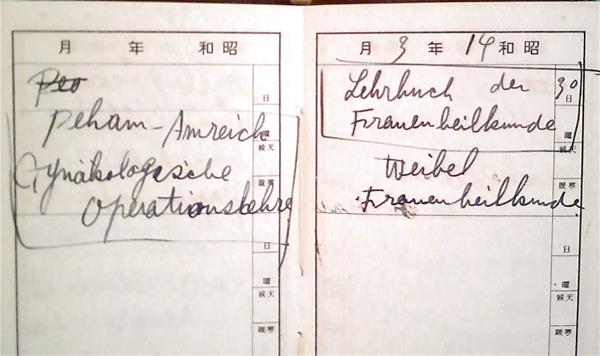 昭和 年 月
Peo
日
Peham-Amreich
曜
天候
Gynäkologische
寒暖
Operationslehre
日
曜
天候
寒暖
昭和 14 年 3 月
Lehrbuch der
30
日
Frauenheilkunde
曜
天候
Weibel
寒暖
Frauenheilkunde
日
曜
天候
寒暖